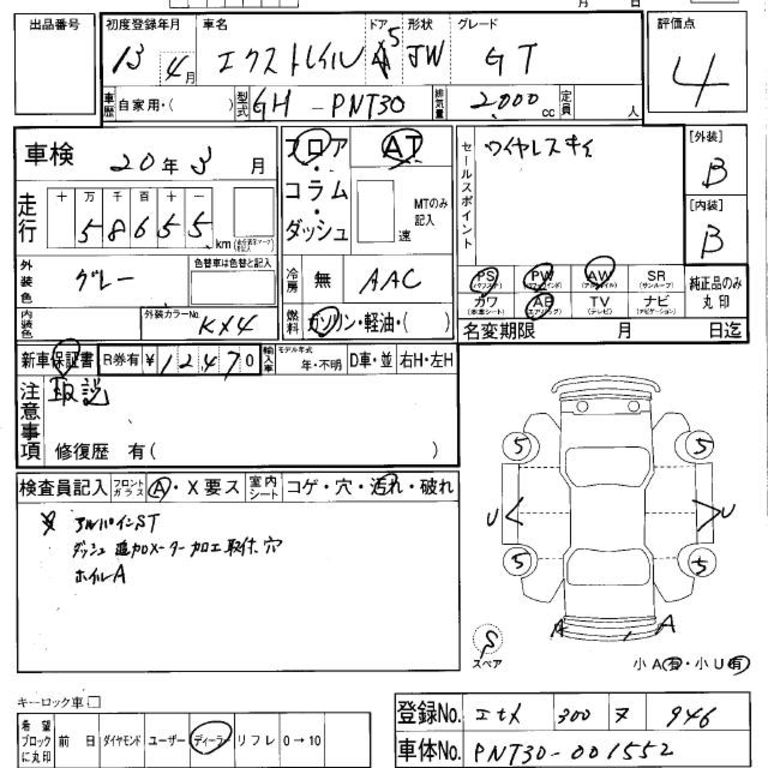 月 日
出品番号 初度登録年月 車名 ドア 形状 グレード 評価点
13 4月 エクストレイル 5 JW GT 4
車歴 自家用・( ) 型式 GH-PNT30 排気量 2,000cc 定員 人
車検 20年3月
フロア・コラム・ダッシュ AT MTのみ記入 速
セールスポイント ワイヤレスキー
[外装] B
[内装] B
走行 十 万 千 百 十 一
58655 km
外装色 グレー 色替車は色替と記入
冷房 無 AAC
内装色 外装カラーNo. KX4
燃料 ガソリン・軽油・( )
PS (パワステ) PW AW SR (サンルーフ) 純正品のみ丸印
カワ (本革シート) AB (エアバッグ) TV (テレビ) ナビ (ナビゲーション)
名変期限 月 日迄
新車保証書 R券有 ¥12,470 輸入車 モデル年式 年・不明 D車・並 右H・左H
注意事項 取説
修復歴 有( )
検査員記入 フロントガラス A・X要ス 室内シート コゲ・穴・汚れ・破れ
アルパインST
ダッシュ 追加メーター加工取付.穴
ホイルA
5 5
U U
5 5
A A
S
スペア
小A有・小U有
キーロック車□
希望ブロックに丸印 前日 ダイヤモンド ユーザー ディーラー リフレ 0→10
登録No. 300 946
車体No. PNT30-001552